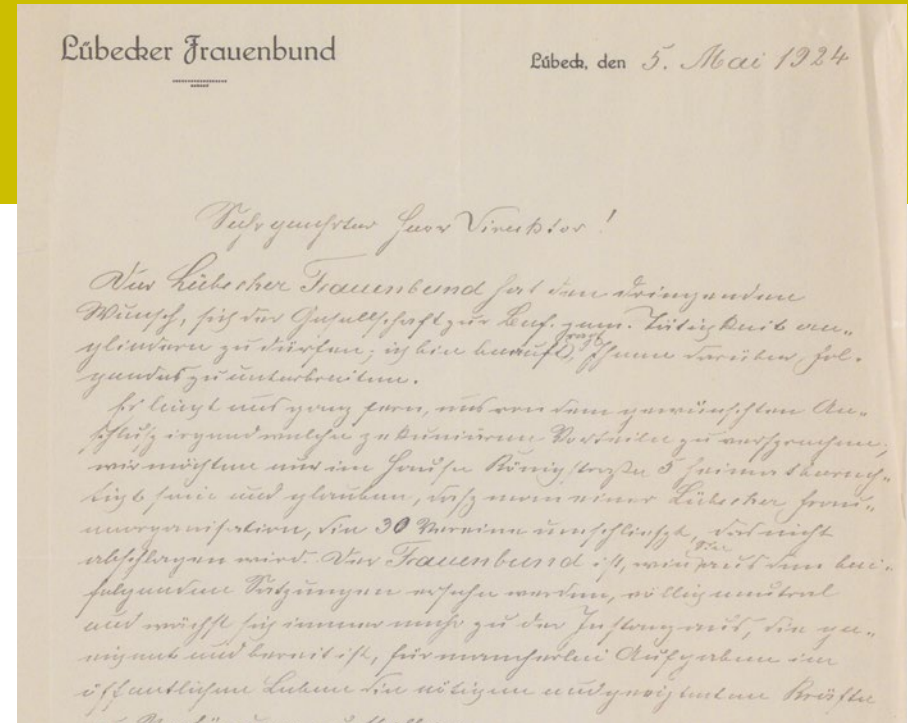 Lübecker Frauenbund
Lübeck, den 5. Mai 1924
Sehr geehrter Herr Direktor!
Der Lübecker Frauenbund hat den dringenden
Wunsch, sich der Gesellschaft zur Bef. gem. Tätigkeit an-
gliedern zu dürfen; ich bin beauftragt, Ihnen darüber fol-
gendes zu unterbreiten.
Es liegt uns ganz fern, uns von dem gewünschten An-
schluß irgend welche pekuniären Vorteile zu versprechen;
wir möchten nur im Hause Königstraße 5 heimatberech-
tigt sein und glauben, daß man einer Lübecker Frau-
enorganisation, die 30 Vereine umschließt, das nicht
abschlagen wird. Der Frauenbund ist, wie Sie aus den bei-
folgenden Satzungen ersehn werden, völlig neutral
und wächst sich immer mehr zu der Instanz aus, die ge-
eignet und bereit ist, für mancherlei Aufgaben im
öffentlichen Leben die nötigen und geeigneten Kräfte